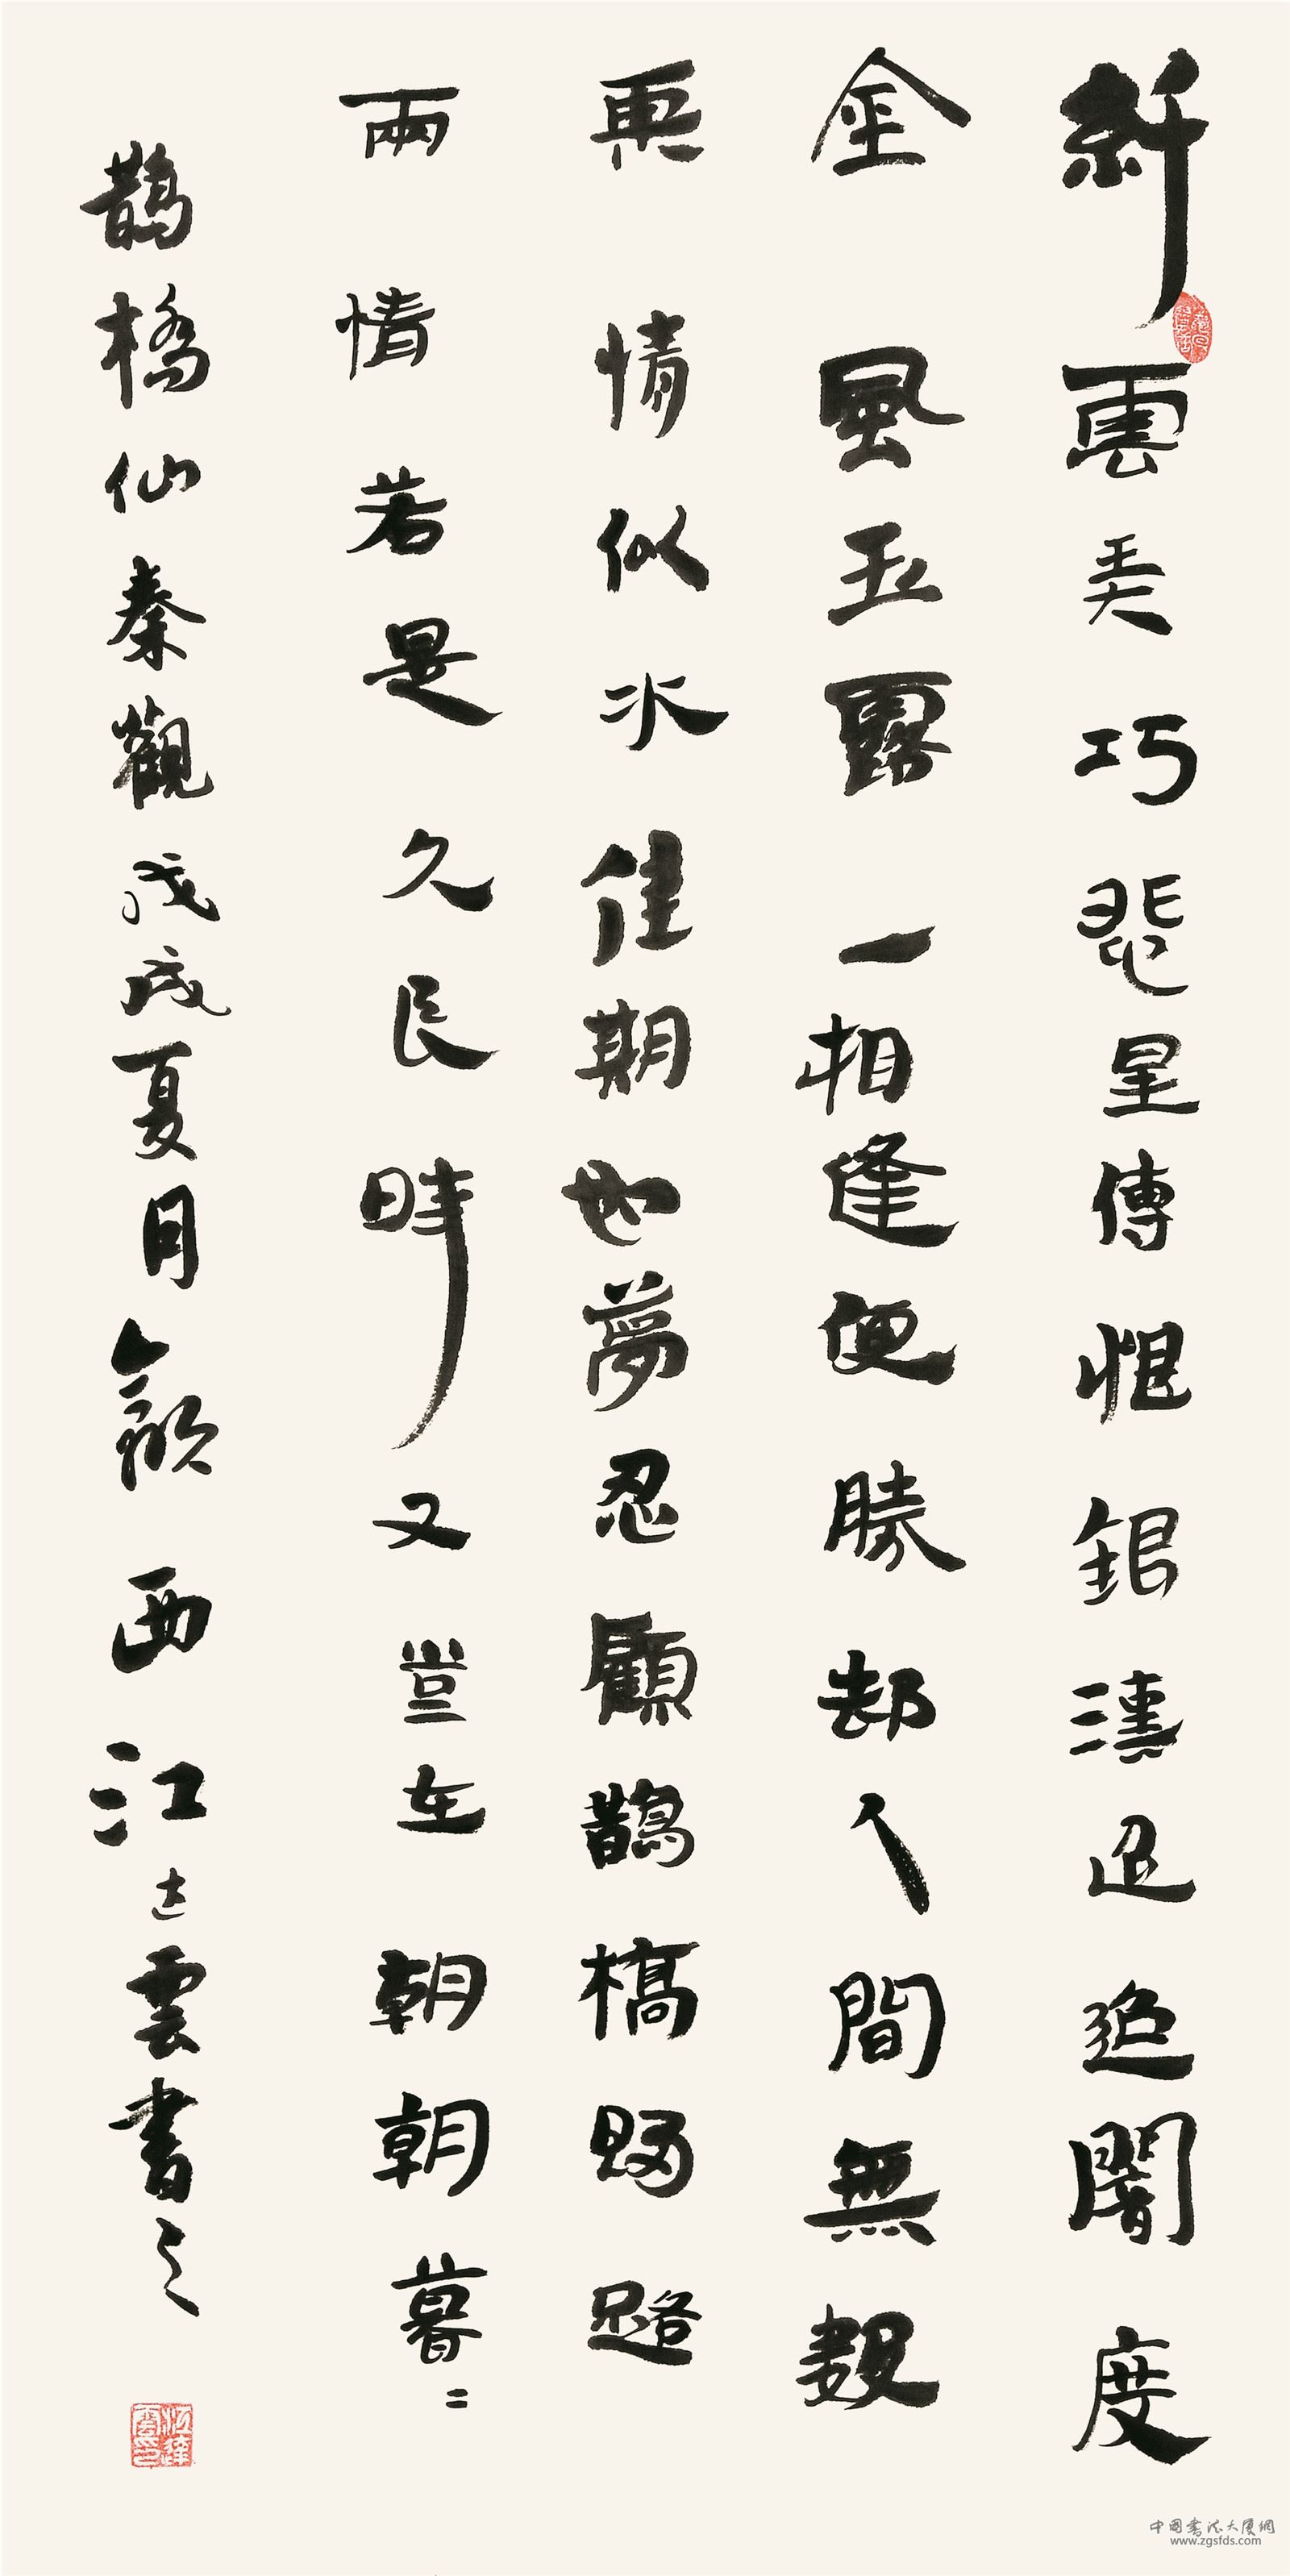 纤雲弄巧飛星傳恨銀漢迢迢闇度
金風玉露一相逢便勝却人間無數
柔情似水佳期如夢忍顧鵲橋歸路
兩情若是久長時又豈在朝朝暮々
鵲橋仙秦觀戊戌夏月歙西江达雲書之
江達雲印
中國書法大厦網
www.zgsfds.com